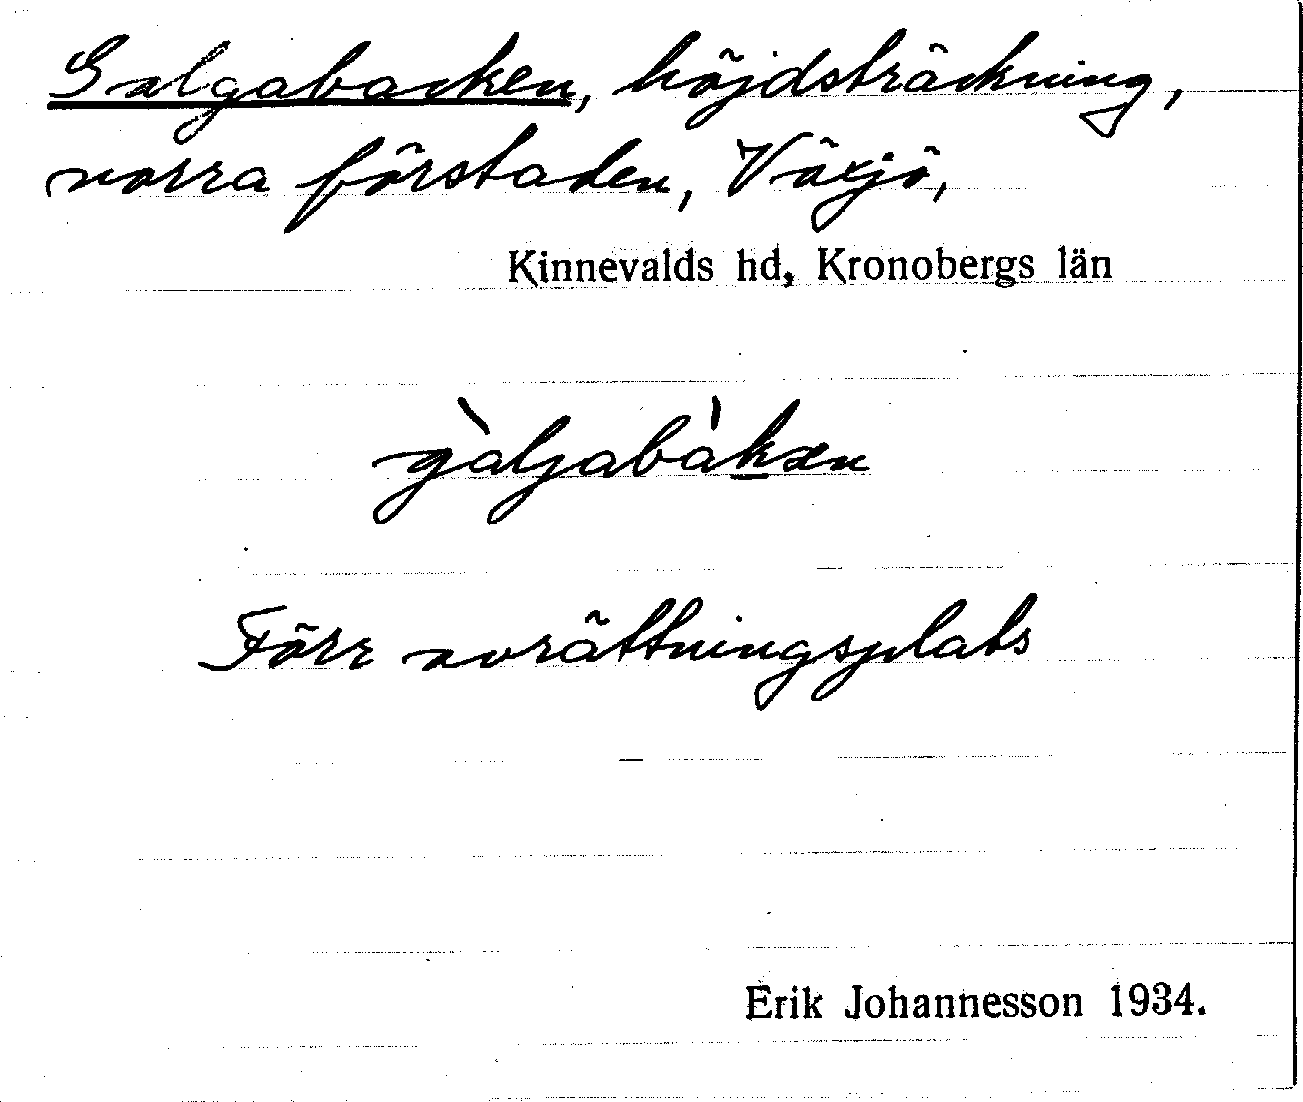 Galgabacken, höjdsträckning,
norra förstaden, Växjö,
Kinnevalds hd, Kronobergs län
gàljabàkæn
Förr avrättningsplats
Erik Johannesson 1934.